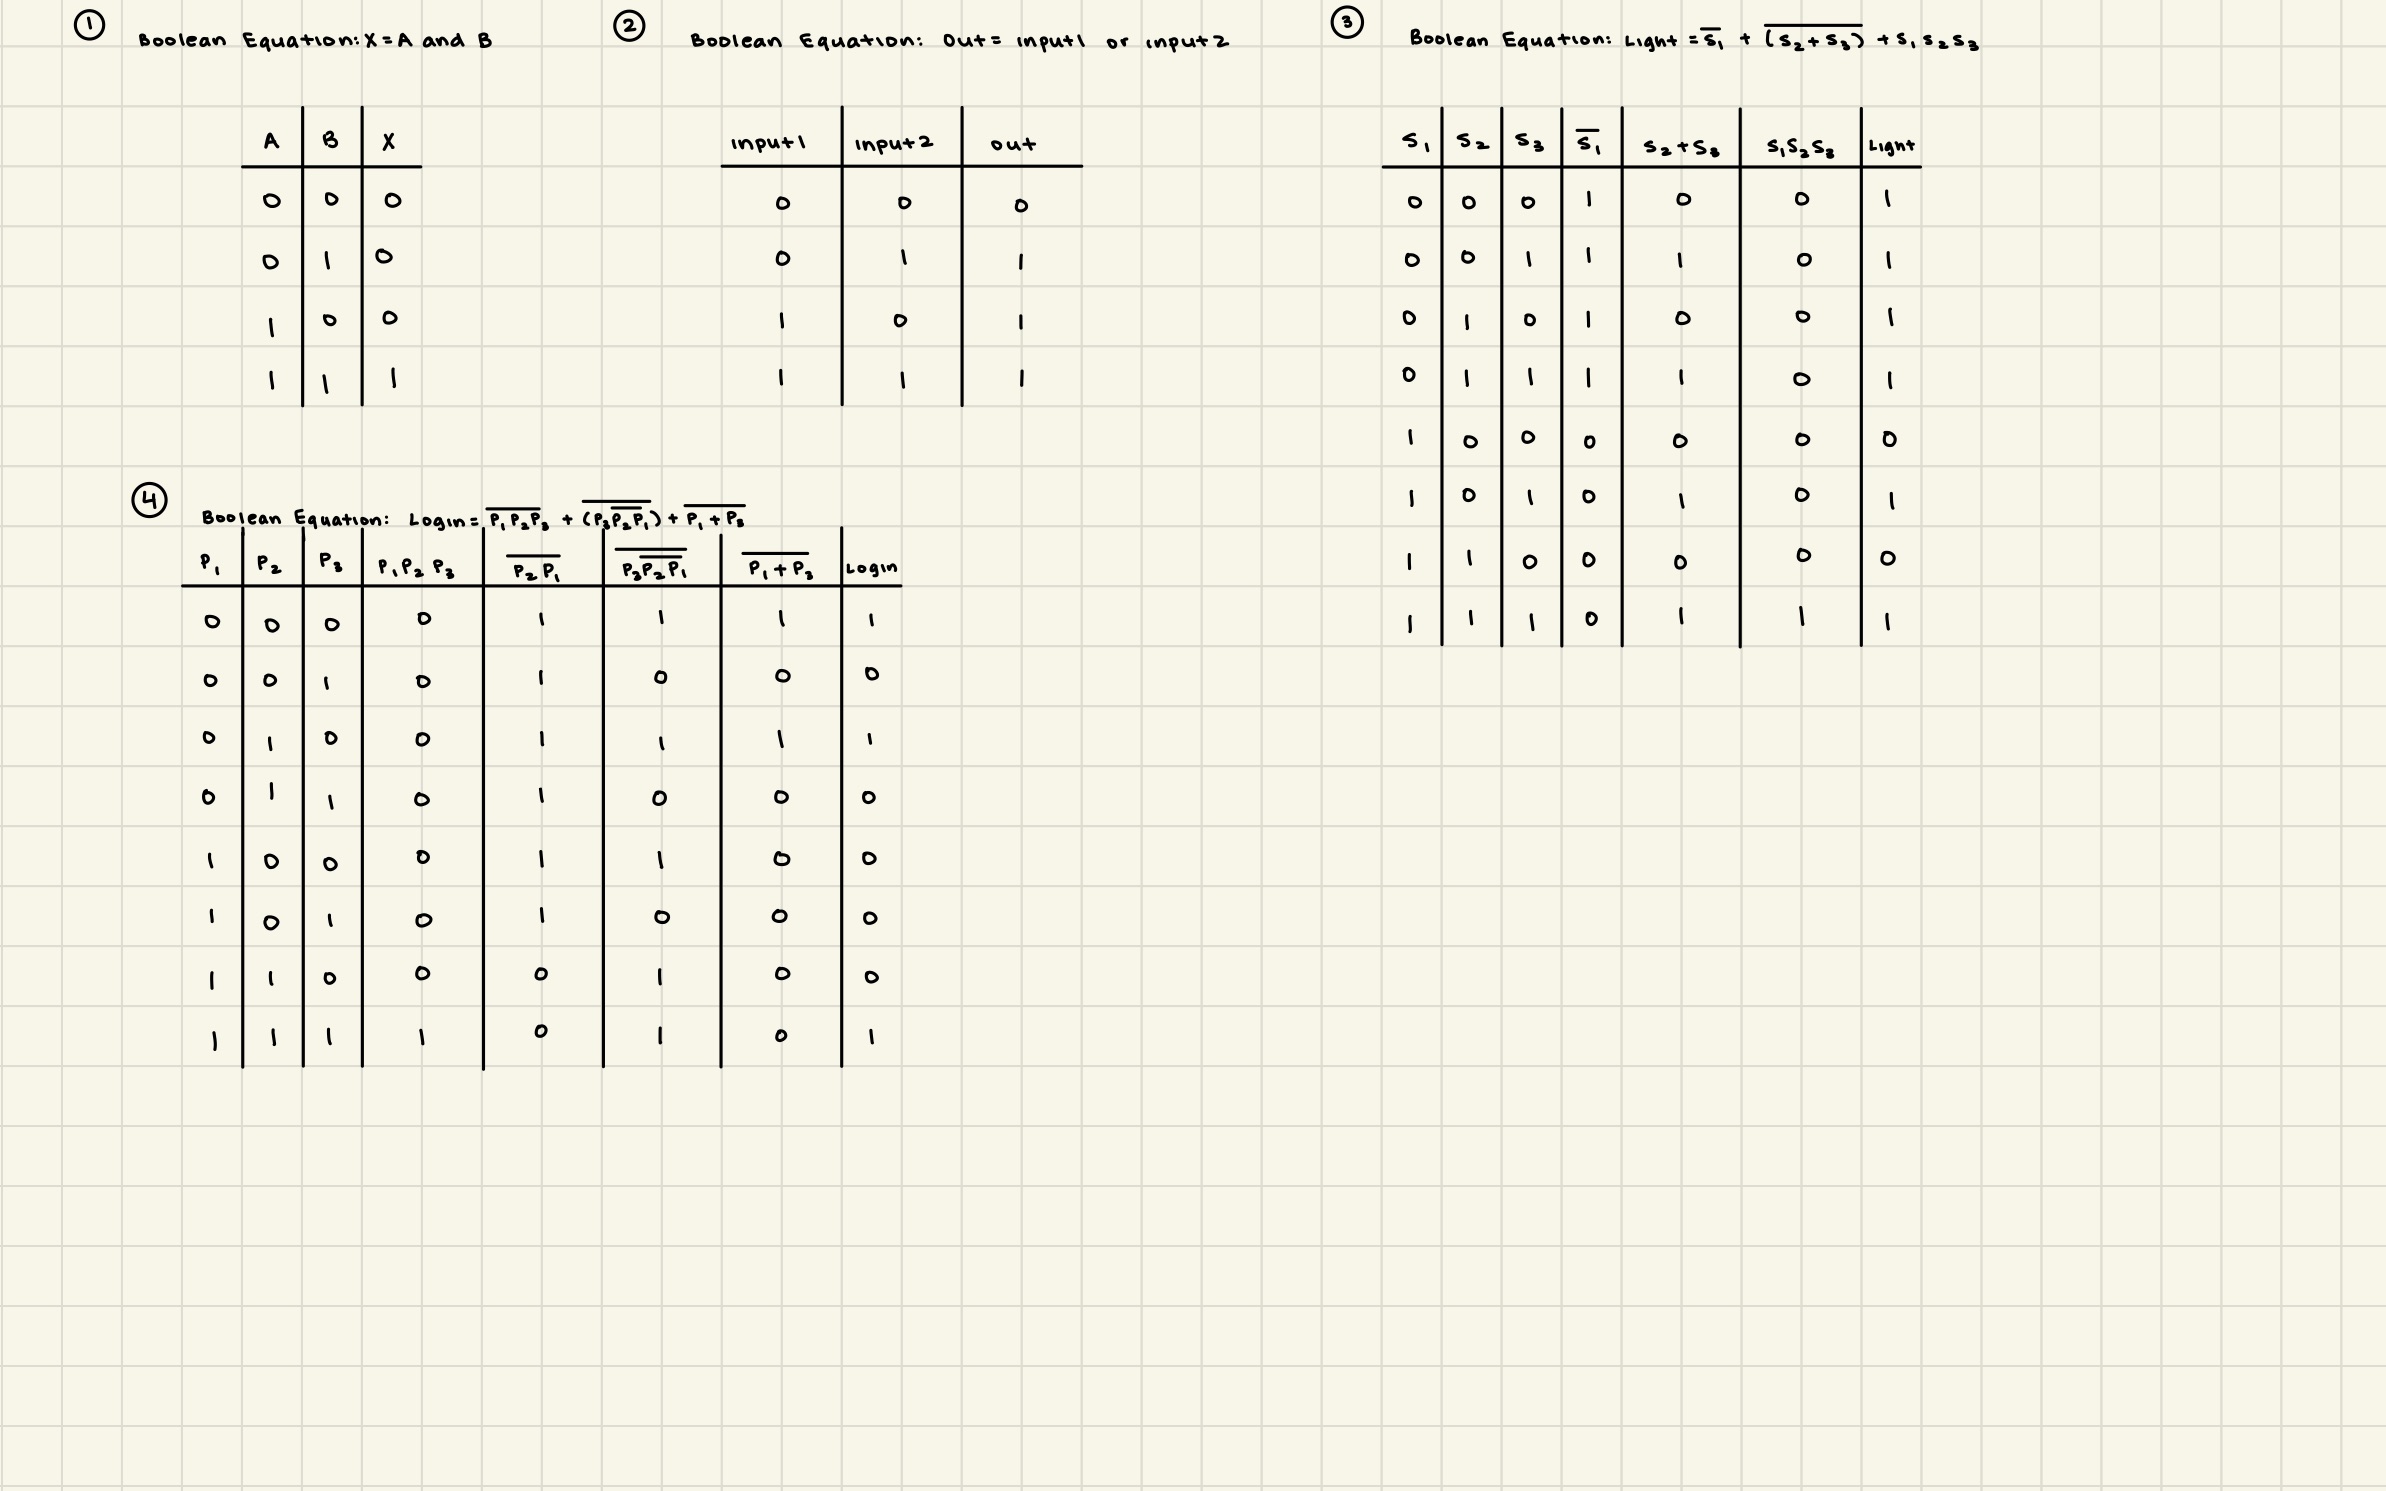 ①
Boolean Equation: X = A and B
A B X
0 0 0
0 1 0
1 0 0
1 1 1
②
Boolean Equation: Out = input1 or input2
input1 input2 out
0 0 0
0 1 1
1 0 1
1 1 1
③
Boolean Equation: Light = S̅₁ + \overline{(S₂ + S₃)} + S₁ S₂ S₃
S₁ S₂ S₃ S̅₁ S₂ + S₃ S₁S₂S₃ Light
0 0 0 1 0 0 1
0 0 1 1 1 0 1
0 1 0 1 0 0 1
0 1 1 1 1 0 1
1 0 0 0 0 0 0
1 0 1 0 1 0 1
1 1 0 0 0 0 0
1 1 1 0 1 1 1
④
Boolean Equation: Login = \overline{P₁P₂P₃} + \overline{(P₃\overline{P₂P₁})} + \overline{P₁ + P₃}
P₁ P₂ P₃ P₁P₂P₃ \overline{P₂P₁} \overline{P₃\overline{P₂P₁}} \overline{P₁ + P₃} Login
0 0 0 0 1 1 1 1
0 0 1 0 1 0 0 0
0 1 0 0 1 1 1 1
0 1 1 0 1 0 0 0
1 0 0 0 1 1 0 0
1 0 1 0 1 0 0 0
1 1 0 0 0 1 0 0
1 1 1 1 0 1 0 1